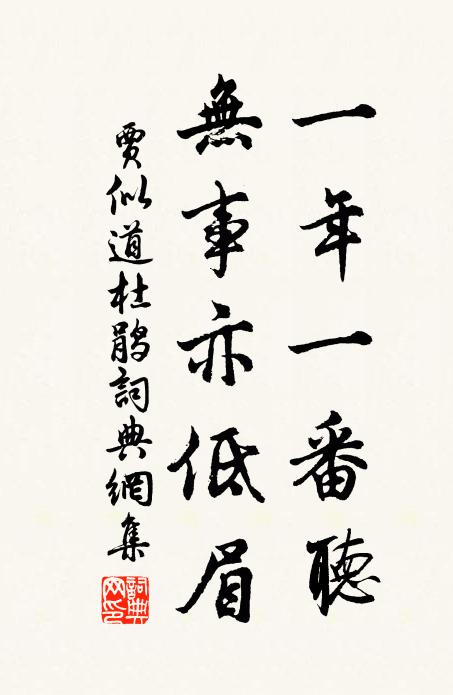 一年一番聽
無事亦低眉
賈似道杜鵑詞典網集
詞典網印